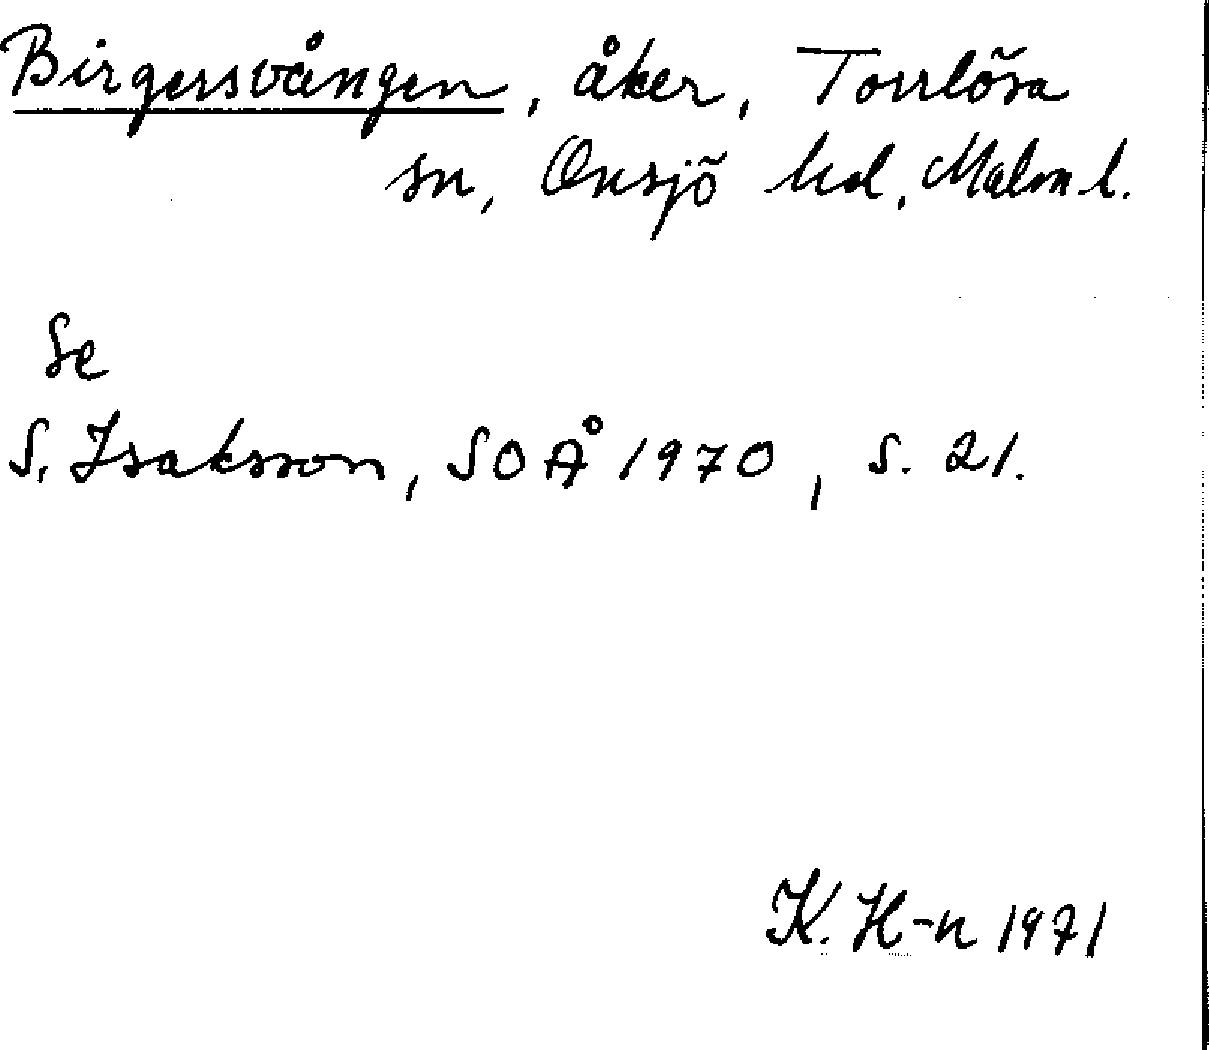 Birgersvången, åker, Torrlösa
sn, Onsjö hd, Malm l.
Se
S. Isaksson, SOÅ 1970, s. 21.
K. H-n 1971